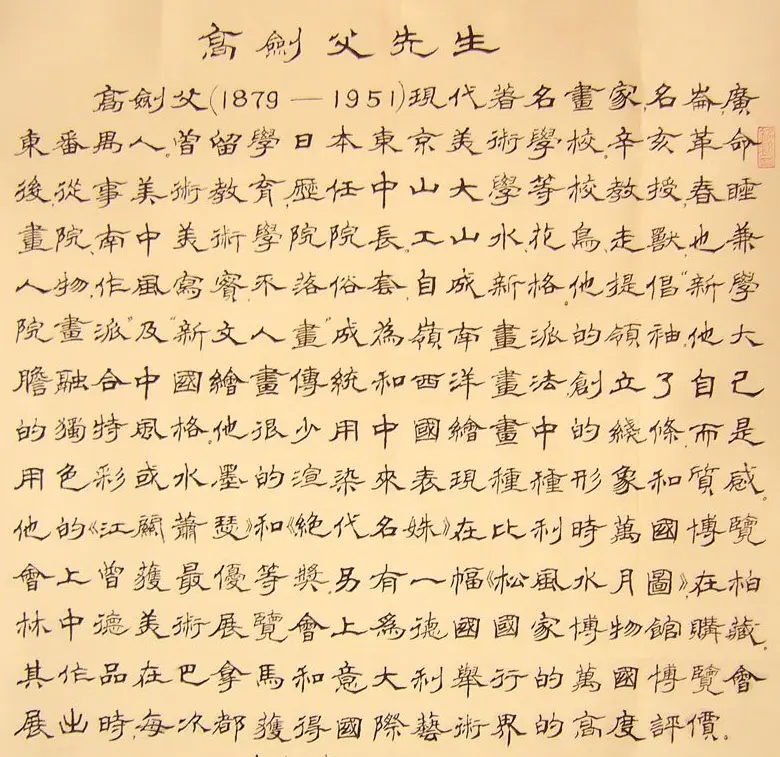 高劍父先生
高劍父(1879—1951)現代著名畫家,名崙,廣
東番禺人。曾留學日本東京美術學校。辛亥革命
後,從事美術教育,歷任中山大學等校教授,春睡
畫院、南中美術學院院長。工山水、花鳥、走獸,也兼
人物,作風寫實,不落俗套,自成新格。他提倡“新學
院畫派”及“新文人畫”成為嶺南畫派的領袖。他大
膽融合中國繪畫傳統和西洋畫法,創立了自己
的獨特風格。他很少用中國繪畫中的綫條,而是
用色彩或水墨的渲染來表現種種形象和質感。
他的《江關蕭瑟》和《絕代名姝》在比利時萬國博覽
會上曾獲最優等獎,另有一幅《松風水月圖》,在柏
林中德美術展覽會上為德國國家博物館購藏。
其作品在巴拿馬和意大利舉行的萬國博覽會
展出時,每次都獲得國際藝術界的高度評價。